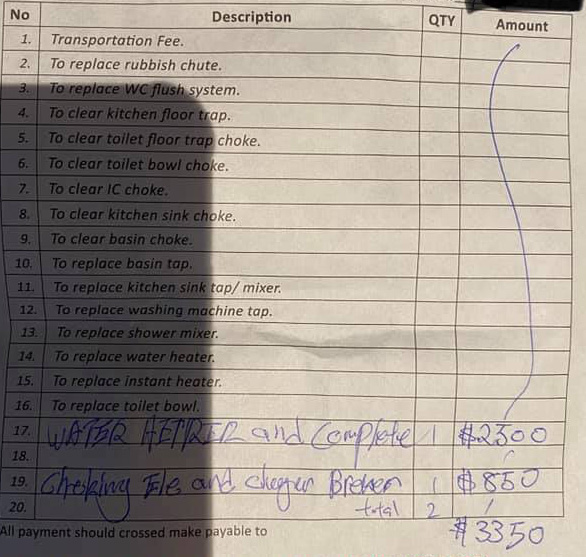 No Description QTY Amount
1. Transportation Fee.
2. To replace rubbish chute.
3. To replace WC flush system.
4. To clear kitchen floor trap.
5. To clear toilet floor trap choke.
6. To clear toilet bowl choke.
7. To clear IC choke.
8. To clear kitchen sink choke.
9. To clear basin choke.
10. To replace basin tap.
11. To replace kitchen sink tap/ mixer.
12. To replace washing machine tap.
13. To replace shower mixer.
14. To replace water heater.
15. To replace instant heater.
16. To replace toilet bowl.
17. WATER and Complete 1 $2500
18.
19. and 1 $850
20. total 2
All payment should crossed make payable to $3350